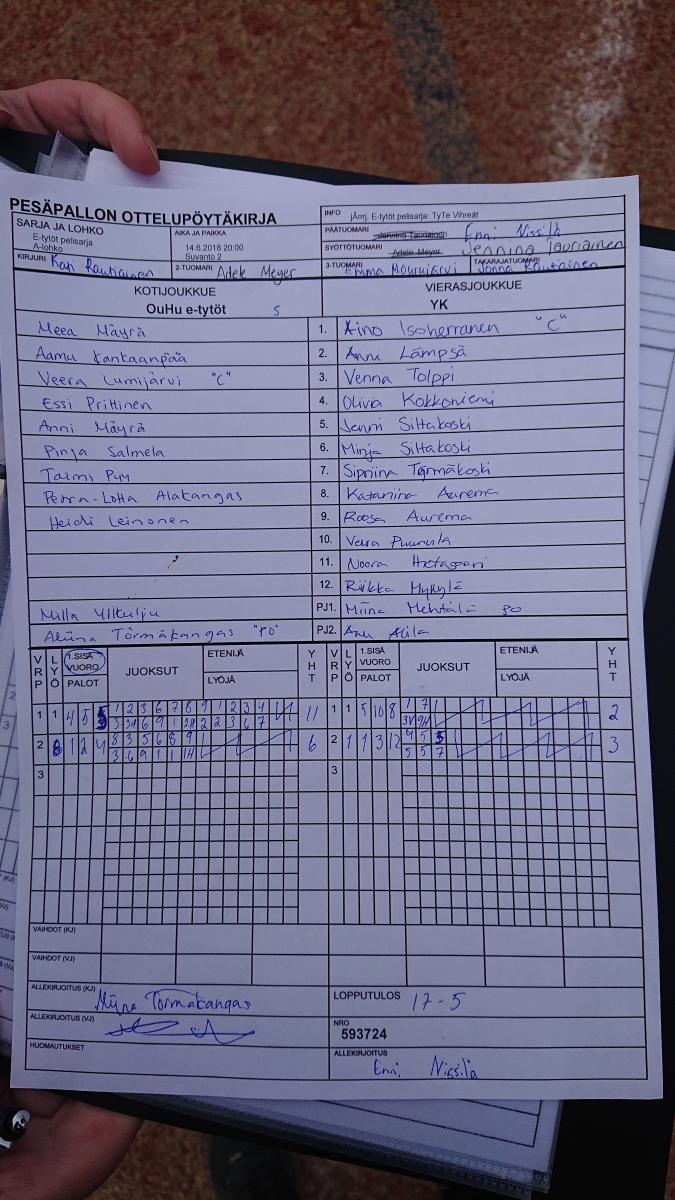 PESÄPALLON OTTELUPÖYTÄKIRJA
INFO jÄrrj. E-tytöt pelisarja: TyTe Vihreät
SARJA JA LOHKO E-tytöt pelisarja A-lohko
AIKA JA PAIKKA 14.6.2018 20:00 Suvanto 2
PÄÄTUOMARI Jennina Tauriainen Enni Nissilä
SYÖTTÖTUOMARI Adele Meyer Jennina Tauriainen
KIRJURI Kari Rautiainen 2-TUOMARI Adele Meyer 3-TUOMARI Emma Mourujärvi TAKARAJATUOMARI Janna Rautiainen
KOTIJOUKKUE VIERASJOUKKUE
OuHu e-tytöt S YK
Meea Mäyrä 1. Aino Isoherranen "C"
Aamu Kankaanpää 2. Anni Lämpsä
Veera Lumijärvi "C" 3. Venna Tolppi
Essi Prittinen 4. Olivia Kokkoniemi
Anni Mäyrä 5. Jenni Siltakoski
Pinja Salmela 6. Minja Siltakoski
Taimi Pyy 7. Sipriina Törmäkoski
Perra-Lotta Alakangas 8. Katariina Aurema
Heidi Leinonen 9. Roosa Aurema
10. Veera Puurula
11. Noora
12. Riikka
Milla PJ1. Miina Mehtälä PO
Aliina Törmäkangas "PO" PJ2. Anu Alila
VRP LYÖ 1.SISÄ VUORO PALOT JUOKSUT ETENIJÄ LYÖJÄ YHT VRP LYÖ 1.SISÄ VUORO PALOT JUOKSUT ETENIJÄ LYÖJÄ YHT
1 1 4 5 3 1 2 3 6 7 8 9 1 2 3 4 11 1 1 5 10 8 1 7 2
2 8 1 2 4 8 3 5 6 8 9 6 2 1 1 3 12 4 5 5 3
3 6 9 1 1 5 5 7
3 3
VAIHDOT (KJ)
VAIHDOT (VJ)
ALLEKIRJOITUS (KJ) Miina Törmäkangas LOPPUTULOS 17-5
ALLEKIRJOITUS (VJ) NRO 593724
HUOMAUTUKSET ALLEKIRJOITUS Enni Nissilä